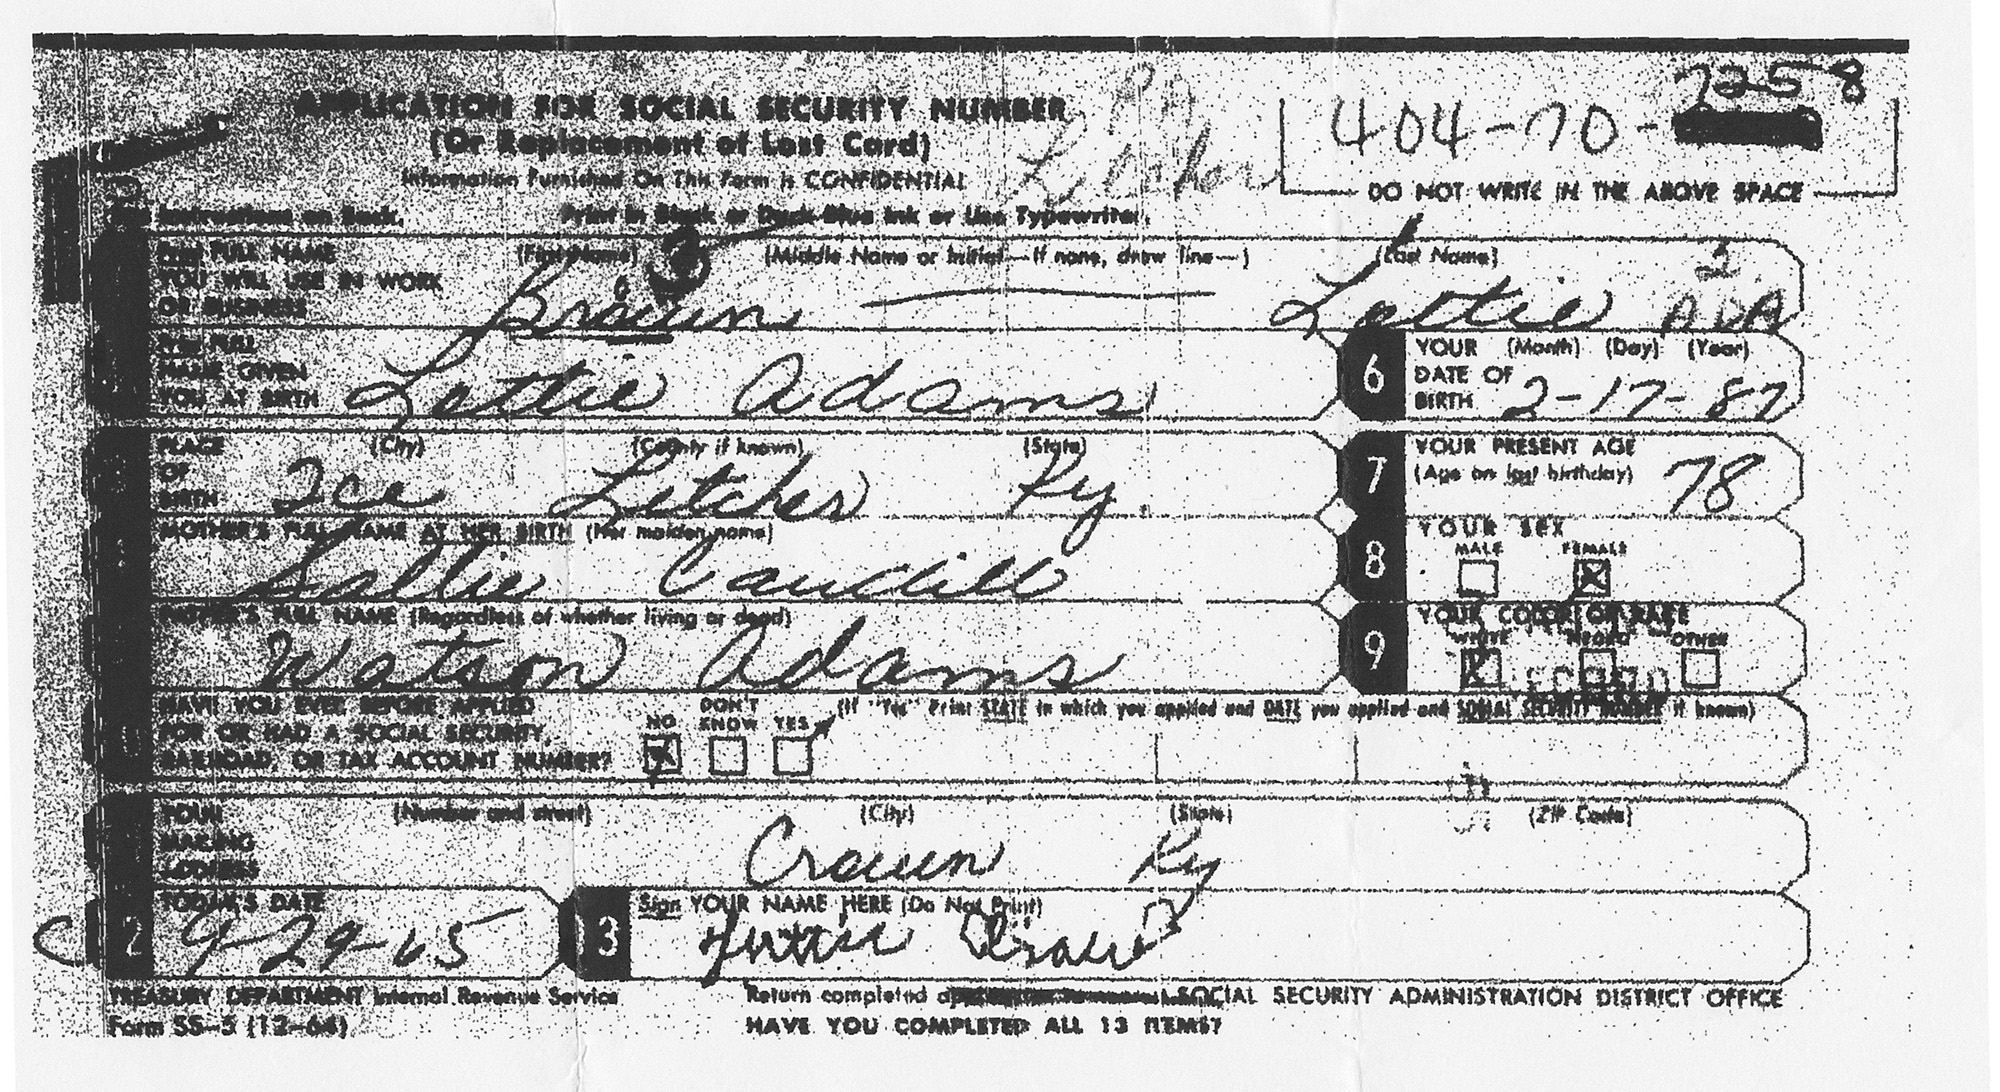 7258
APPLICATION FOR SOCIAL SECURITY NUMBER
404-70-
(Or Replacement of Lost Card)
Information Furnished On This Form Is CONFIDENTIAL
DO NOT WRITE IN THE ABOVE SPACE
See Instructions on Back. Print in Black or Dark Blue Ink or Use Typewriter.
Print FULL NAME (First Name) (Middle Name or Initial—If none, draw line—) (Last Name)
YOU WILL USE IN WORK
OR BUSINESS Brown Lettie
Print FULL
NAME GIVEN
YOU AT BIRTH Lettie Adams
6 YOUR (Month) (Day) (Year)
DATE OF
BIRTH 2-17-87
PLACE (City) (County if known) (State)
OF
BIRTH Ice Letcher Ky.
7 YOUR PRESENT AGE
(Age on last birthday) 78
MOTHER'S FULL NAME AT HER BIRTH (Her maiden name)
Sallie Caudill
8 YOUR SEX
MALE FEMALE
X
FATHER'S FULL NAME (Regardless of whether living or dead)
Watson Adams
9 YOUR COLOR OR RACE
WHITE NEGRO OTHER
X
HAVE YOU EVER BEFORE APPLIED
FOR OR HAD A SOCIAL SECURITY,
RAILROAD, OR TAX ACCOUNT NUMBER?
NO DON'T KNOW YES
X
(If "Yes" Print STATE in which you applied and DATE you applied and SOCIAL SECURITY NUMBER if known)
YOUR (Number and street) (City) (State) (Zip Code)
MAILING
ADDRESS Crown Ky
TODAY'S DATE
2 9-29-65
3 Sign YOUR NAME HERE (Do Not Print)
Lettie Brown
TREASURY DEPARTMENT Internal Revenue Service
Form SS-5 (12-64)
Return completed SOCIAL SECURITY ADMINISTRATION DISTRICT OFFICE
HAVE YOU COMPLETED ALL 13 ITEMS?